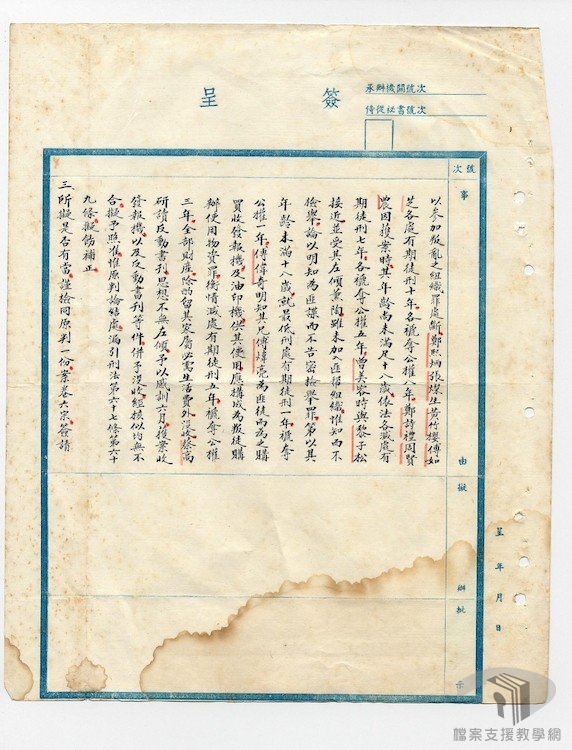 簽呈
承辦機關號次
侍從祕書號次
號次
事由
擬辦
批示
呈 年 月 日
以參加叛亂之組織罪處斷鄭熙炳張煤生黃竹櫻傅如
芝各處有期徒刑十年各褫奪公權八年鄭詩禮周賢
農因獲案時其年齡尚未滿足十八歲依法各減處有
期徒刑七年各褫奪公權五年曾美容時與黎子松
接近並受其左傾薰陶雖未加入匪幫組織惟知而不
檢舉論以明知為匪諜而不告密檢舉罪第以其
年齡未滿十八歲就最低刑處有期徒刑一年褫奪
公權一年傅傳奇明知其兄傅煒亮為匪徒而為之購
買收發報機及油印機供其使用應構成為叛徒購
辦使用物資罪衡情減處有期徒刑五年褫奪公權
三年全部財產除酌留其家屬必需生活費外沒收蔡高
研讀反動書刊思想不無左傾予以感訓六月獲案收
發報機以及反動書刊等件併予沒收經核似均無不
合擬予照准惟原判論結處漏引刑法第六十七條第六十
九條擬飭補正
三、所擬是否有當謹檢同原判一份案卷六宗簽請
檔案支援教學網